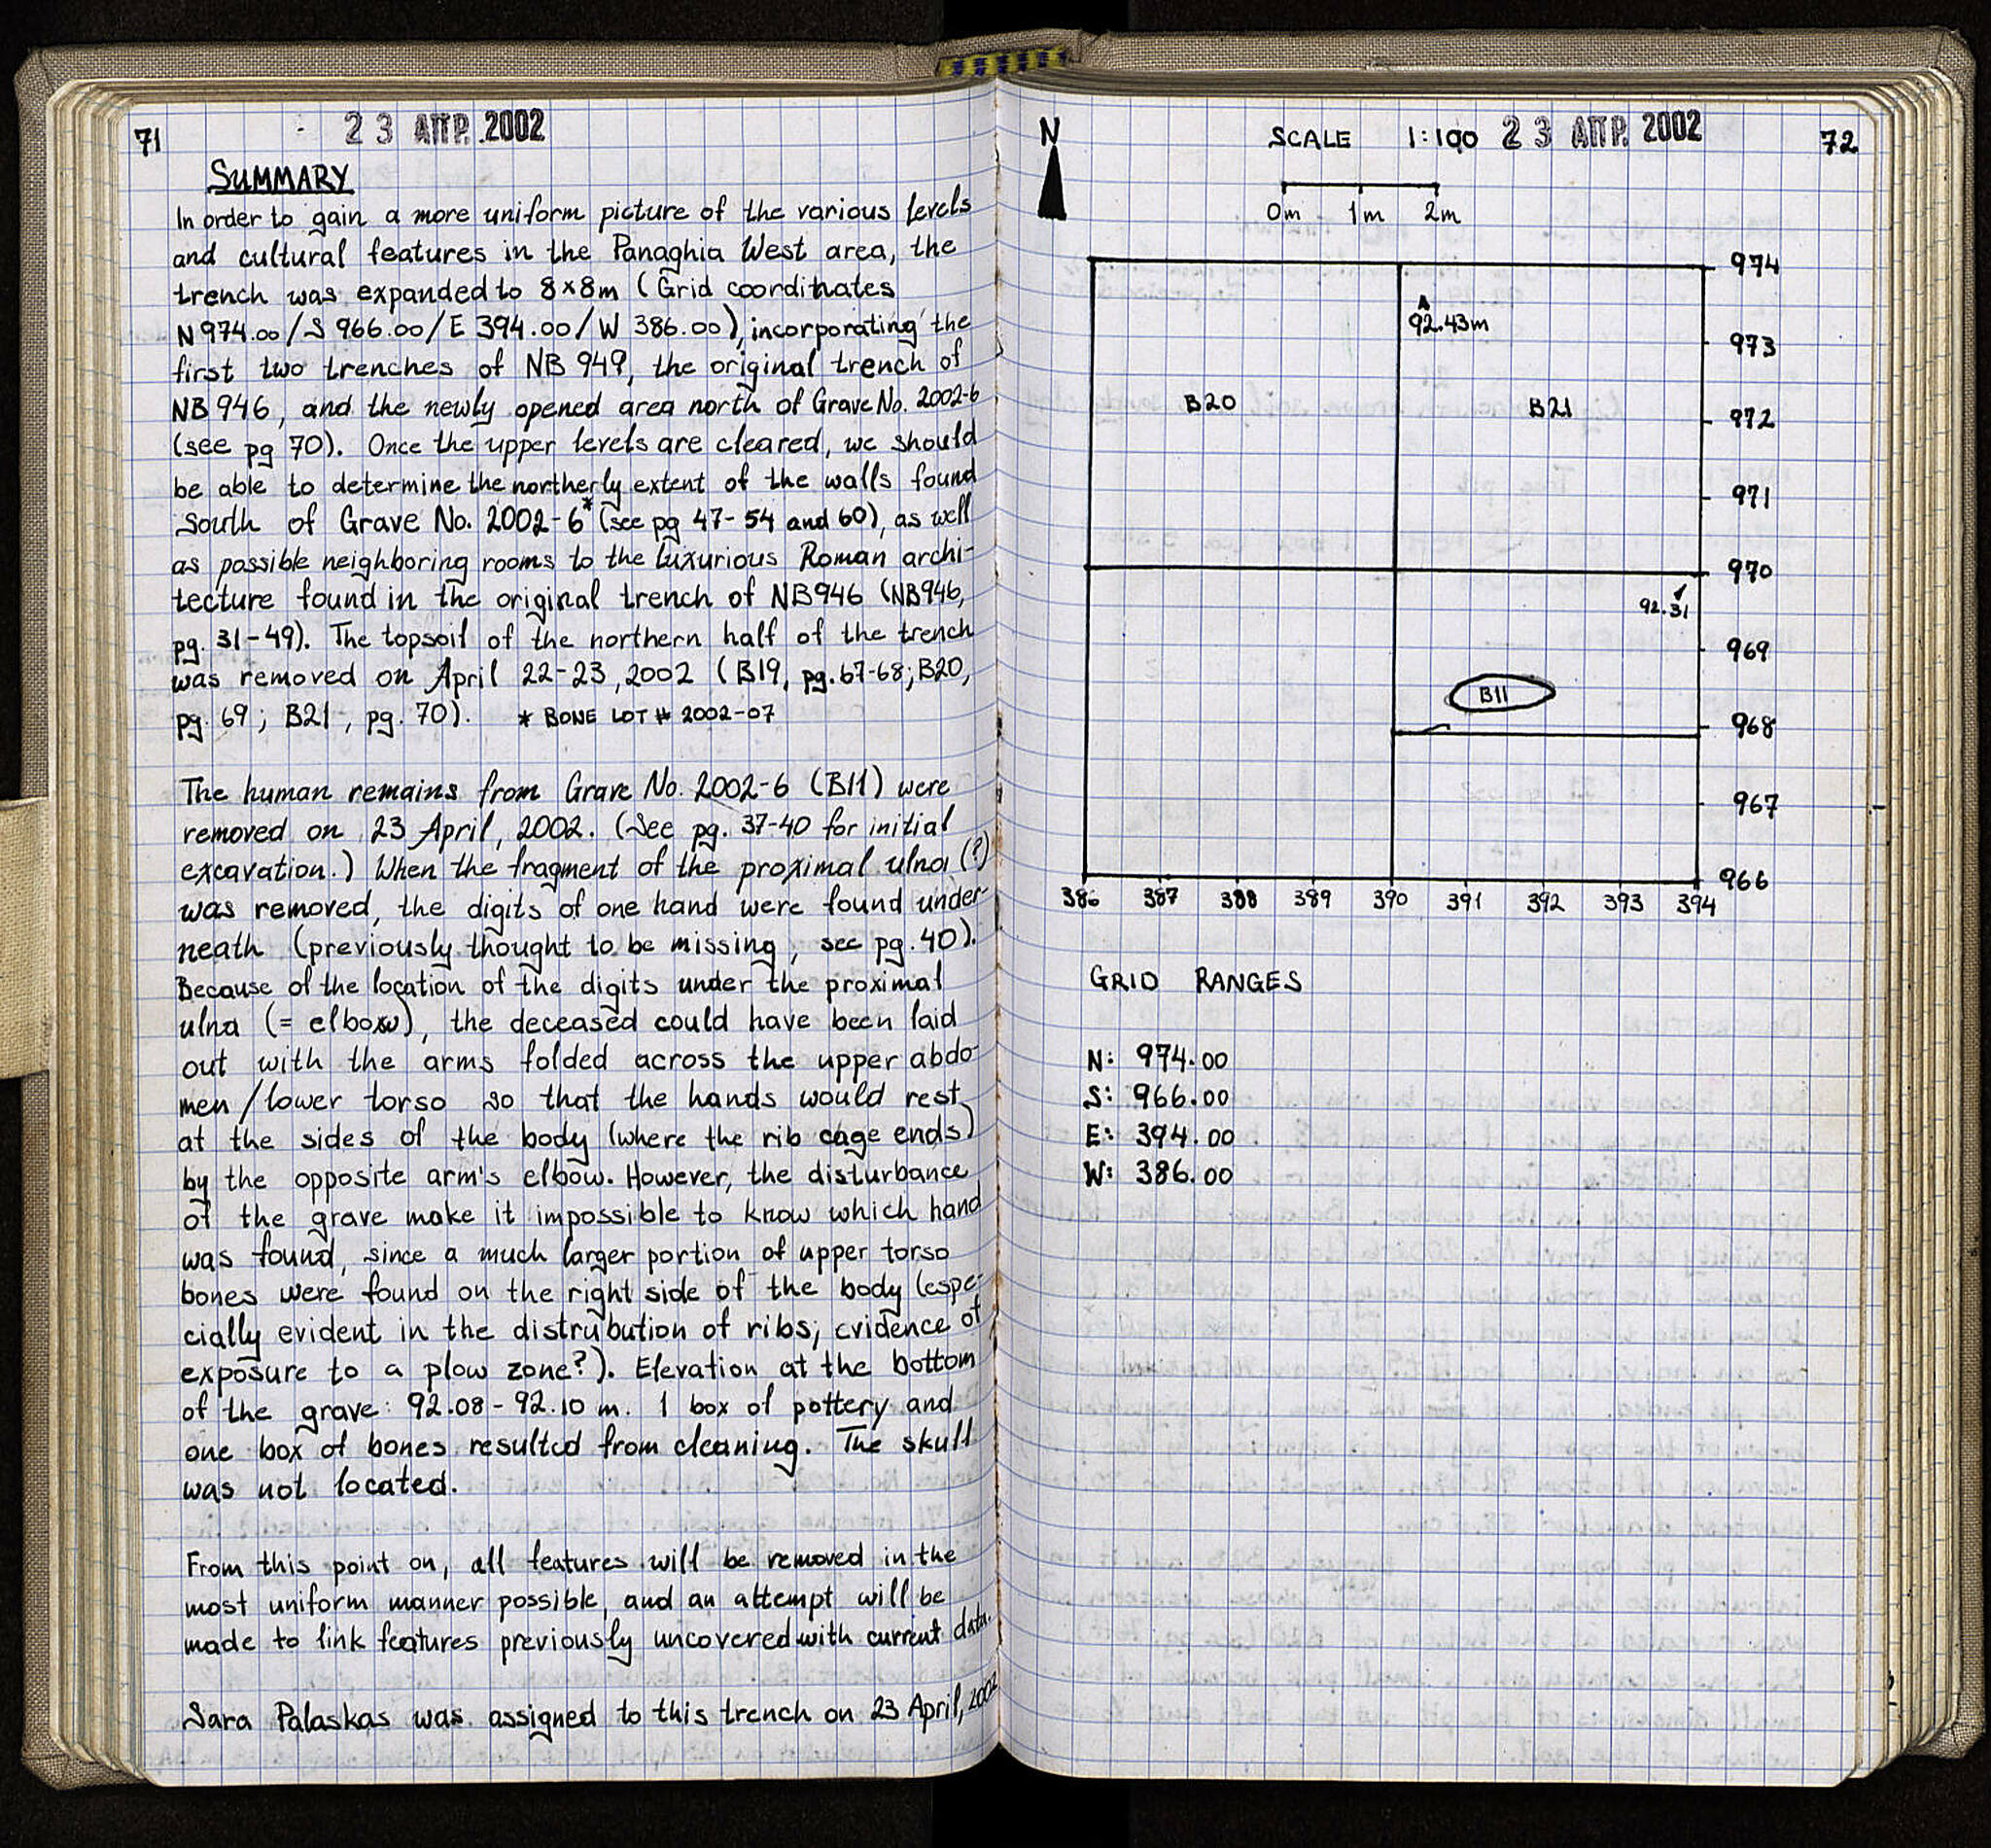 71
23 ΑΠΡ. 2002
SUMMARY
In order to gain a more uniform picture of the various levels
and cultural features in the Panaghia West area, the
trench was expanded to 8×8m (Grid coordinates
N 974.00/S 966.00/E 394.00/W 386.00), incorporating the
first two trenches of NB 949, the original trench of
NB 946, and the newly opened area north of Grave No. 2002-6
(see pg 70). Once the upper levels are cleared, we should
be able to determine the northerly extent of the walls found
South of Grave No. 2002-6* (see pg 47-54 and 60), as well
as possible neighboring rooms to the luxurious Roman archi-
tecture found in the original trench of NB946 (NB946,
pg. 31-49). The topsoil of the northern half of the trench
was removed on April 22-23, 2002 (B19, pg. 67-68; B20,
pg. 69; B21, pg. 70). * BONE LOT # 2002-07
The human remains from Grave No. 2002-6 (B11) were
removed on 23 April, 2002. (See pg. 37-40 for initial
excavation.) When the fragment of the proximal ulna (?)
was removed, the digits of one hand were found under-
neath (previously thought to be missing, see pg. 40).
Because of the location of the digits under the proximal
ulna (= elbow), the deceased could have been laid
out with the arms folded across the upper abdo-
men/lower torso so that the hands would rest
at the sides of the body (where the rib cage ends)
by the opposite arm's elbow. However, the disturbance
of the grave make it impossible to know which hand
was found, since a much larger portion of upper torso
bones were found on the right side of the body (espe-
cially evident in the distribution of ribs; evidence of
exposure to a plow zone?). Elevation at the bottom
of the grave: 92.08 - 92.10 m. 1 box of pottery and
one box of bones resulted from cleaning. The skull
was not located.
From this point on, all features will be removed in the
most uniform manner possible, and an attempt will be
made to link features previously uncovered with current data.
Sara Palaskas was assigned to this trench on 23 April, 2002
N
SCALE 1:100 23 ΑΠΡ. 2002
72
0m 1m 2m
974
92.43m
973
B20 B21
972
971
970
92.31
969
B11
968
967
966
386 387 388 389 390 391 392 393 394
GRID RANGES
N: 974.00
S: 966.00
E: 394.00
W: 386.00